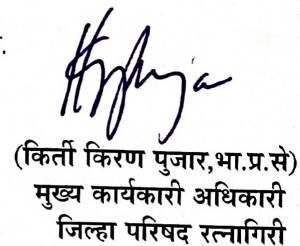 (किर्ती किरण पुजार,भा.प्र.से)
मुख्य कार्यकारी अधिकारी
जिल्हा परिषद रत्नागिरी